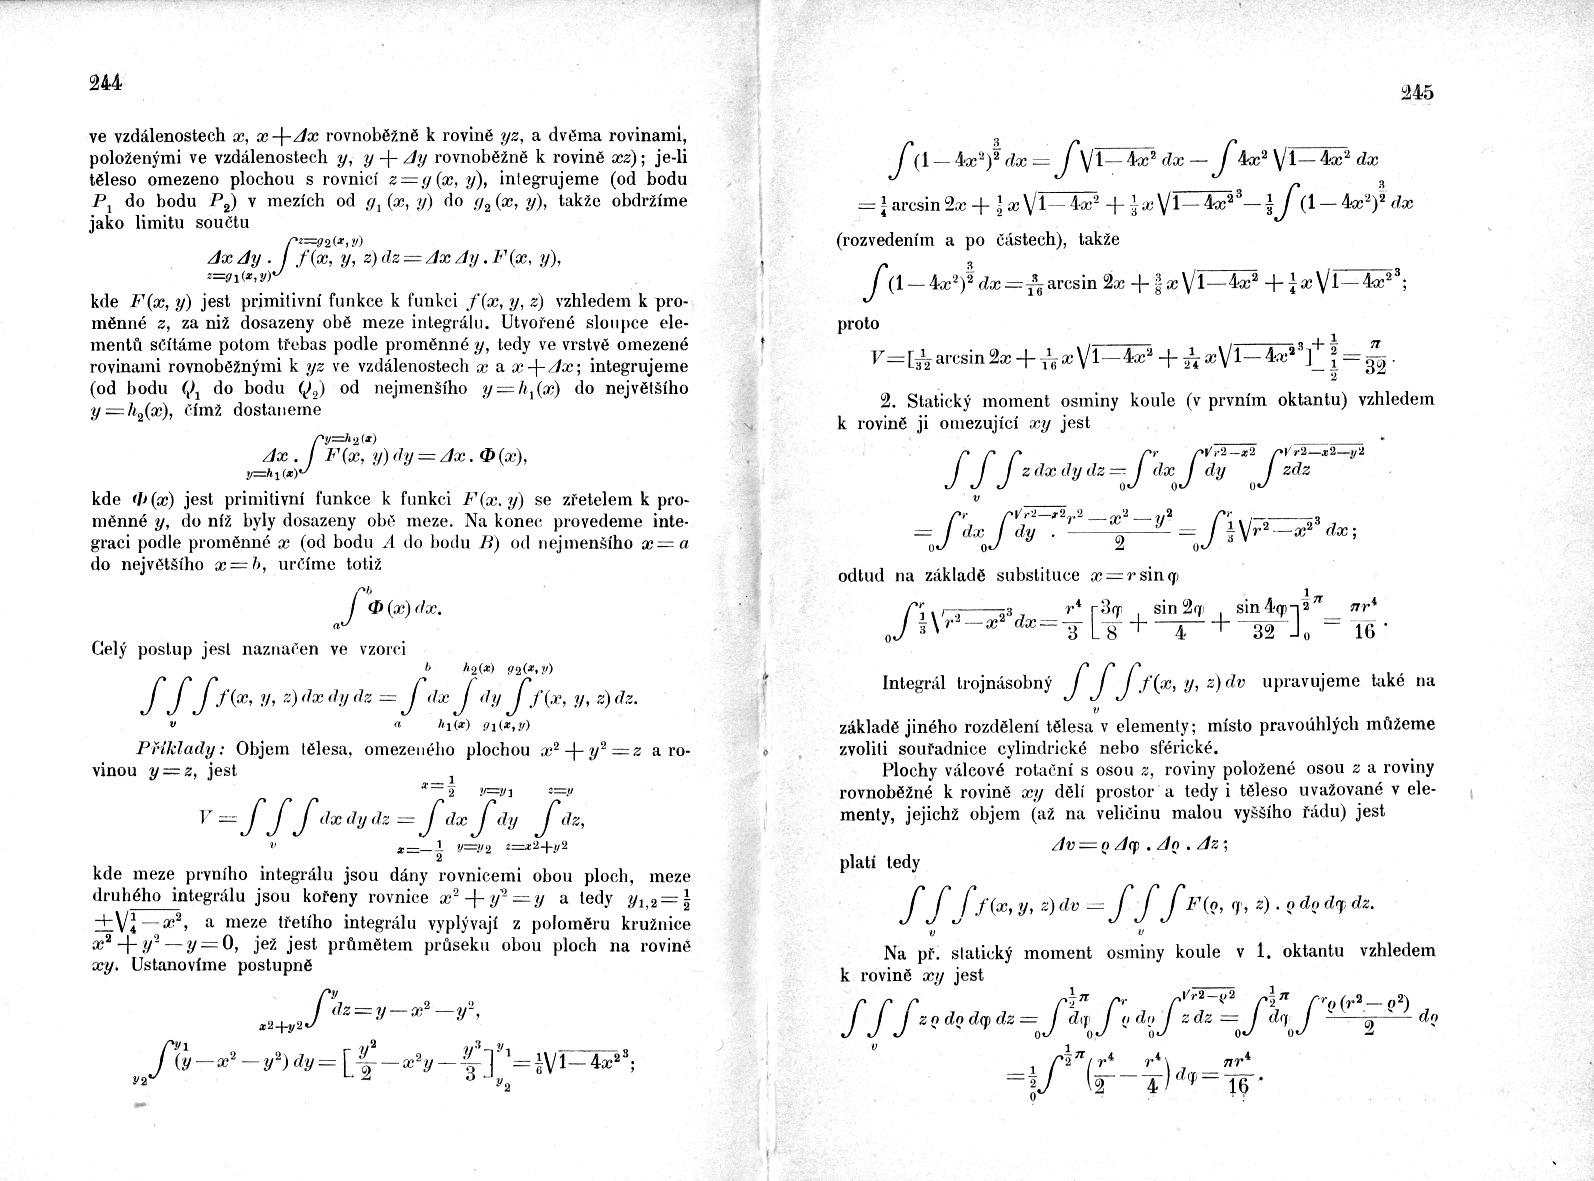 244
ve vzdálenostech x, x + Δx rovnoběžně k rovině yz, a dvěma rovinami,
položenými ve vzdálenostech y, y + Δy rovnoběžně k rovině xz); je-li
těleso omezeno plochou s rovnicí z = g (x, y), integrujeme (od bodu
P₁ do bodu P₂) v mezích od g₁ (x, y) do g₂ (x, y), takže obdržíme
jako limitu součtu
Δx Δy . ∫_{z=g₁(x, y)}^{z=g₂(x, y)} f(x, y, z) dz = Δx Δy . F(x, y),
kde F(x, y) jest primitivní funkce k funkci f(x, y, z) vzhledem k pro-
měnné z, za niž dosazeny obě meze integrálu. Utvořené sloupce ele-
mentů sčítáme potom třebas podle proměnné y, tedy ve vrstvě omezené
rovinami rovnoběžnými k yz ve vzdálenostech x a x + Δx; integrujeme
(od bodu Q₁ do bodu Q₂) od nejmenšího y = h₁(x) do největšího
y = h₂(x), čímž dostaneme
Δx . ∫_{y=h₁(x)}^{y=h₂(x)} F(x, y) dy = Δx . Φ(x),
kde Φ(x) jest primitivní funkce k funkci F(x, y) se zřetelem k pro-
měnné y, do níž byly dosazeny obě meze. Na konec provedeme inte-
graci podle proměnné x (od bodu A do bodu B) od nejmenšího x = a
do největšího x = b, určíme totiž
∫_a^b Φ(x) dx.
Celý postup jest naznačen ve vzorci
∫∫∫_v f(x, y, z) dx dy dz = ∫_a^b dx ∫_{h₁(x)}^{h₂(x)} dy ∫_{g₁(x, y)}^{g₂(x, y)} f(x, y, z) dz.
Příklady: Objem tělesa, omezeného plochou x² + y² = z a ro-
vinou y = z, jest
V = ∫∫∫_v dx dy dz = ∫_{x=−1/2}^{x=1/2} dx ∫_{y=y₂}^{y=y₁} dy ∫_{z=x²+y²}^{z=y} dz,
kde meze prvního integrálu jsou dány rovnicemi obou ploch, meze
druhého integrálu jsou kořeny rovnice x² + y² = y a tedy y₁,₂ = ½
± √(¼ − x²), a meze třetího integrálu vyplývají z poloměru kružnice
x² + y² − y = 0, jež jest průmětem průseku obou ploch na rovině
xy. Ustanovíme postupně
∫_{x²+y²}^y dz = y − x² − y²,
∫_{y₂}^{y₁} (y − x² − y²) dy = [y²/2 − x²y − y³/3]_{y₂}^{y₁} = ⅙ √(1 − 4x²)³;
245
∫ (1 − 4x²)^{3/2} dx = ∫ √(1 − 4x²) dx − ∫ 4x² √(1 − 4x²) dx
= ¼ arcsin 2x + ½ x √(1 − 4x²) + ⅓ x √(1 − 4x²)³ − ⅓ ∫ (1 − 4x²)^{3/2} dx
(rozvedením a po částech), takže
∫ (1 − 4x²)^{3/2} dx = 3/16 arcsin 2x + ⅜ x √(1 − 4x²) + ¼ x √(1 − 4x²)³;
proto
V = [1/32 arcsin 2x + 1/16 x √(1 − 4x²) + 1/24 x √(1 − 4x²)³]_{−1/2}^{+1/2} = π/32 .
2. Statický moment osminy koule (v prvním oktantu) vzhledem
k rovině ji omezující xy jest
∫∫∫_v z dx dy dz = ∫_0^r dx ∫_0^{√(r²−x²)} dy ∫_0^{√(r²−x²−y²)} z dz
= ∫_0^r dx ∫_0^{√(r²−x²)} dy . (r² − x² − y²)/2 = ∫_0^r ⅓ √(r² − x²)³ dx;
odtud na základě substituce x = r sin φ
∫_0^r ⅓ √(r² − x²)³ dx = r⁴/3 [3φ/8 + sin 2φ/4 + sin 4φ/32]_0^{½π} = πr⁴/16 .
Integrál trojnásobný ∫∫∫_v f(x, y, z) dv upravujeme také na
základě jiného rozdělení tělesa v elementy; místo pravoúhlých můžeme
zvoliti souřadnice cylindrické nebo sférické.
Plochy válcové rotační s osou z, roviny položené osou z a roviny
rovnoběžné k rovině xy dělí prostor a tedy i těleso uvažované v ele-
menty, jejichž objem (až na veličinu malou vyššího řádu) jest
Δv = ϱ Δφ . Δϱ . Δz ;
platí tedy
∫∫∫_v f(x, y, z) dv = ∫∫∫_v F(ϱ, φ, z) . ϱ dϱ dφ dz.
Na př. statický moment osminy koule v 1. oktantu vzhledem
k rovině xy jest
∫∫∫_v z ϱ dϱ dφ dz = ∫_0^{½π} dφ ∫_0^r ϱ dϱ ∫_0^{√(r²−ϱ²)} z dz = ∫_0^{½π} dφ ∫_0^r ϱ(r² − ϱ²)/2 dϱ
= ½ ∫_0^{½π} (r⁴/2 − r⁴/4) dφ = πr⁴/16 .